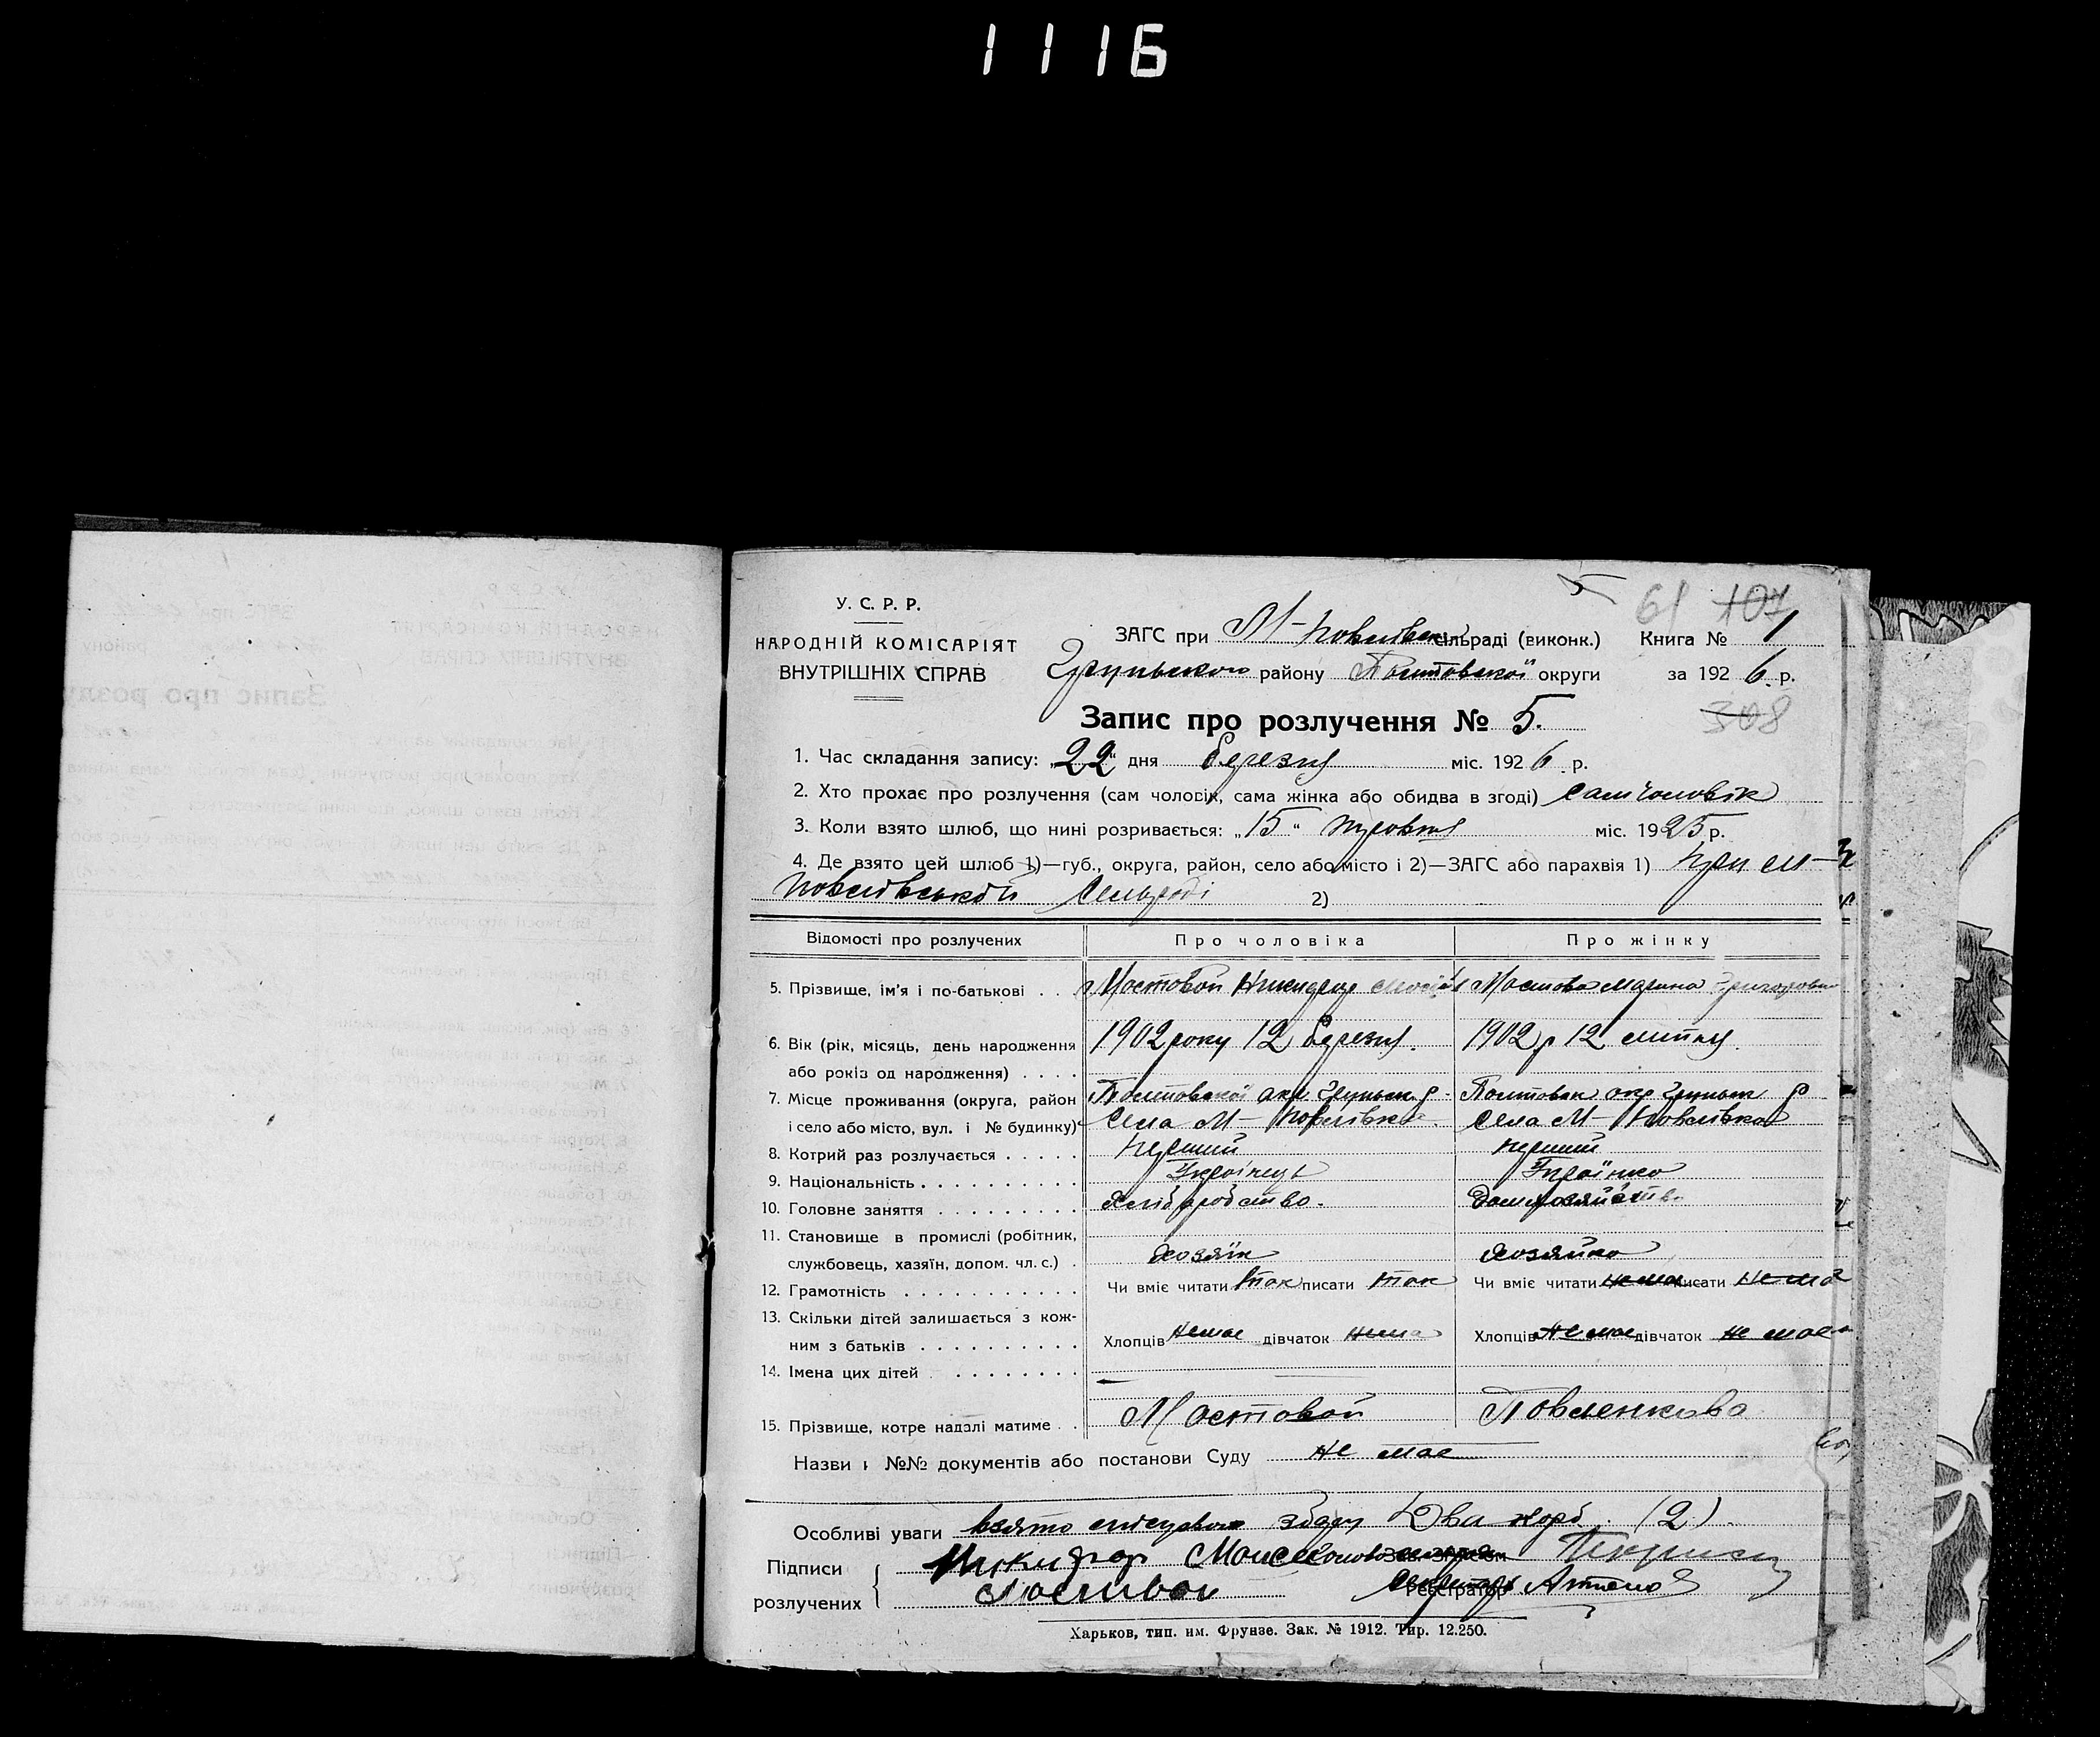 1116
5
61 107
У. С. Р. Р.
НАРОДНІЙ КОМІСАРІЯТ
ВНУТРІШНІХ СПРАВ
ЗАГС при М-Павлівськ сільраді (виконк.) Книга № 1
Грунського району Полтавської округи за 1926 р.
308
Запис про розлучення № 5.
1. Час складання запису: „22“ дня березня міс. 1926 р.
2. Хто прохає про розлучення (сам чоловік, сама жінка або обидва в згоді) сам чоловік
3. Коли взято шлюб, що нині розривається: „15“ міс. 1925 р.
4. Де взято цей шлюб 1)—губ., округа, район, село або місто і 2)—ЗАГС або парахвія 1) При М-
Павлівській Сельраді 2)
Відомості про розлучених Про чоловіка Про жінку
5. Прізвище, ім'я і по-батькові . . Мостовой Мостова Марина Григоровна
6. Вік (рік, місяць, день народження 1902 року 12 березня. 1902 р 12 липня.
або років од народження) . . . .
7. Місце проживання (округа, район Полтавської окр. Грунськ р. Полтавськ окр Грунськ р
і село або місто, вул. і № будинку) Села М-Павлівка. Села М-Павлівка
8. Котрий раз розлучається . . . . . Перший перший
9. Національність . . . . . . . . . . Українець Українка
10. Головне заняття . . . . . . . . . Хліборобство. Домхозяйств
11. Становище в промислі (робітник,
службовець, хазяїн, допом. чл. с.) . Хозяїн Хозяйка
12. Грамотність . . . . . . . . . . . Чи вміє читати так писати так Чи вміє читати немає писати немає
13. Скільки дітей залишається з кож-
ним з батьків . . . . . . . . . . Хлопців немає дівчаток нема Хлопців не має дівчаток не має
14. Імена цих дітей . . . . . . . . —
15. Прізвище, котре надалі матиме . . Мостовой Павленкова
Назви і №№ документів або постанови Суду не має
Особливі уваги Взято збору Два карб. (2).
Підписи
розлучених Мостовой
Реєстратор
Харьков, тип. им. Фрунзе. Зак. № 1912. Тир. 12.250.